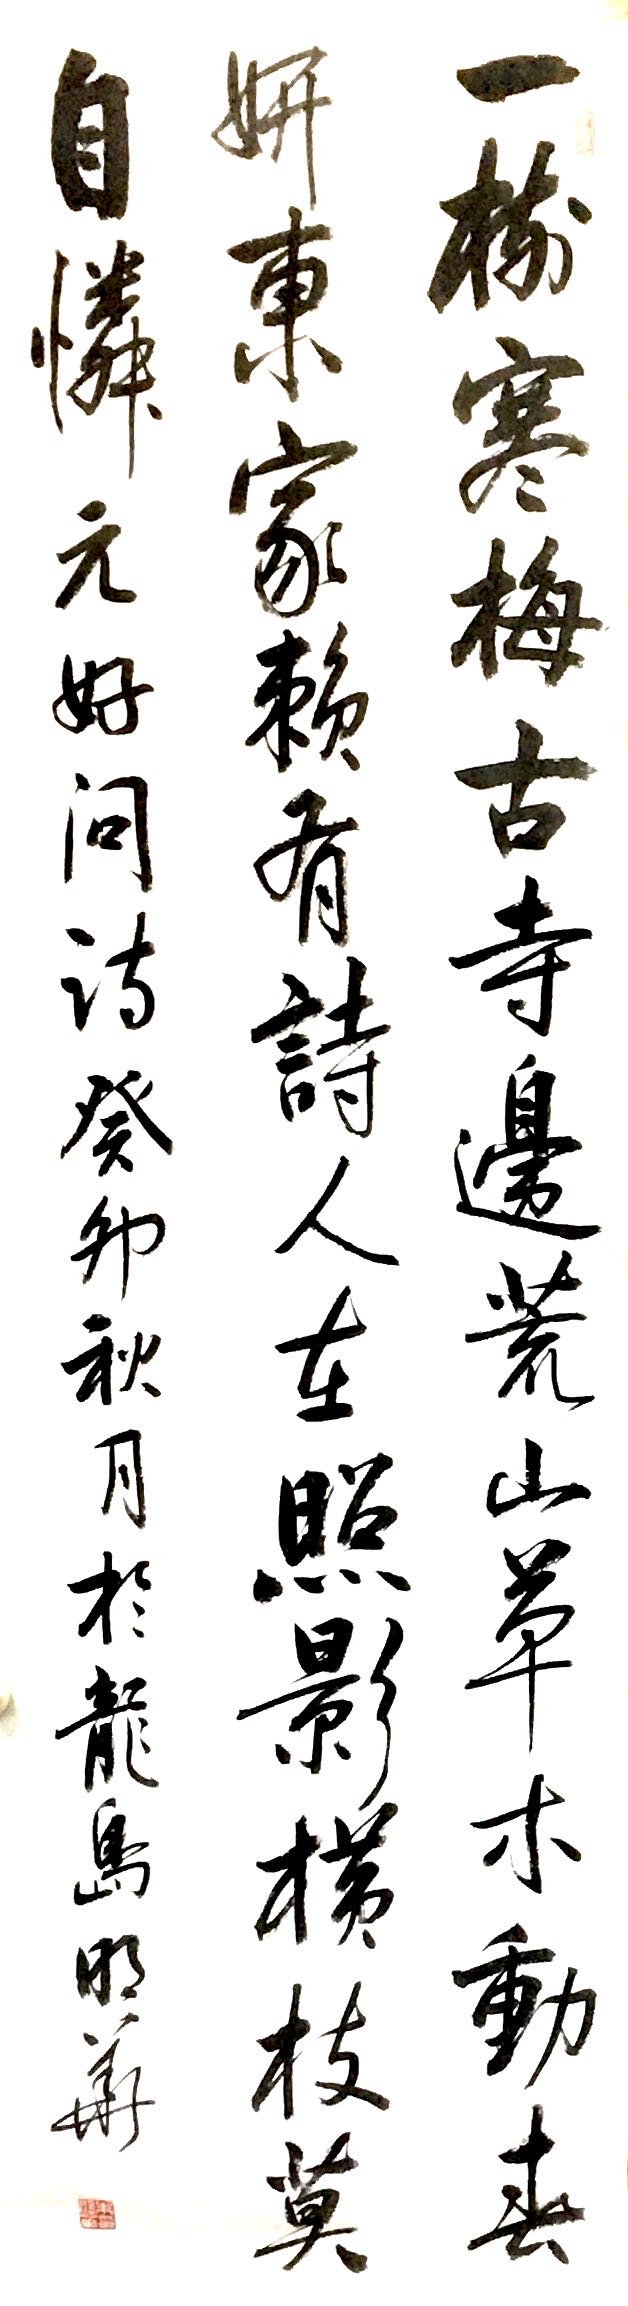 一樹寒梅古寺邊荒山草木動春
妍東家賴有詩人在照影橫枝莫
自憐元好问诗癸卯秋月於龍島明華